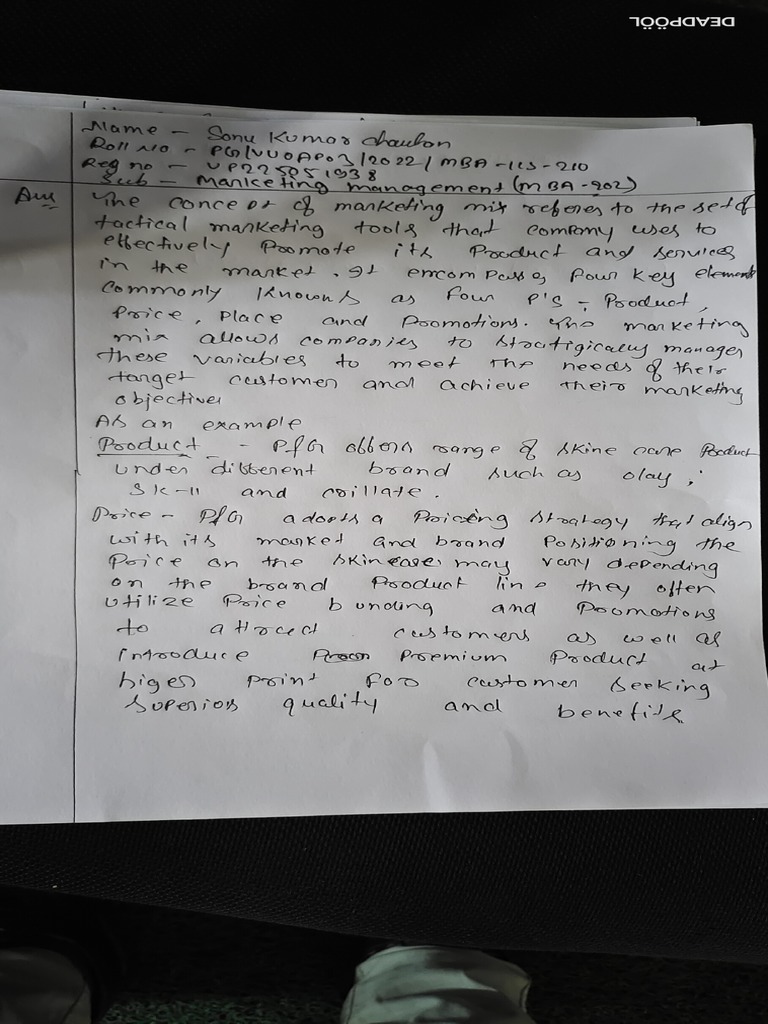 DEADPÖÖL
Name - Sonu Kumar Chauhan
Roll no - PG/VUOAP03/2022/MBA-ICS-210
Reg no - VP22S051938
Sub - Marketing management (MBA-202)
Ans The concept of marketing mix referes to the set of
tactical marketing tools that company uses to
effectively Promote its Product and services
in the market. It encompasses four key elements
commonly knowns as four P's - Product,
Price, Place and Promotions. The marketing
mix allows companies to stratigically manager
these variables to meet the needs of their
target customer and achieve their marketing
objectives
As an example
Product - P&G offers range of skine care Product
under different brand such as olay,
SK-11 and crillate.
Price - P&G adopts a Pricing strategy that align
with its market and brand Positioning the
Price on the skincare may vary depending
on the brand Product line they often
utilize Price bunding and Promotions
to attract customers as well as
introduce Premium Product at
higer print for customer seeking
superior quality and benefits